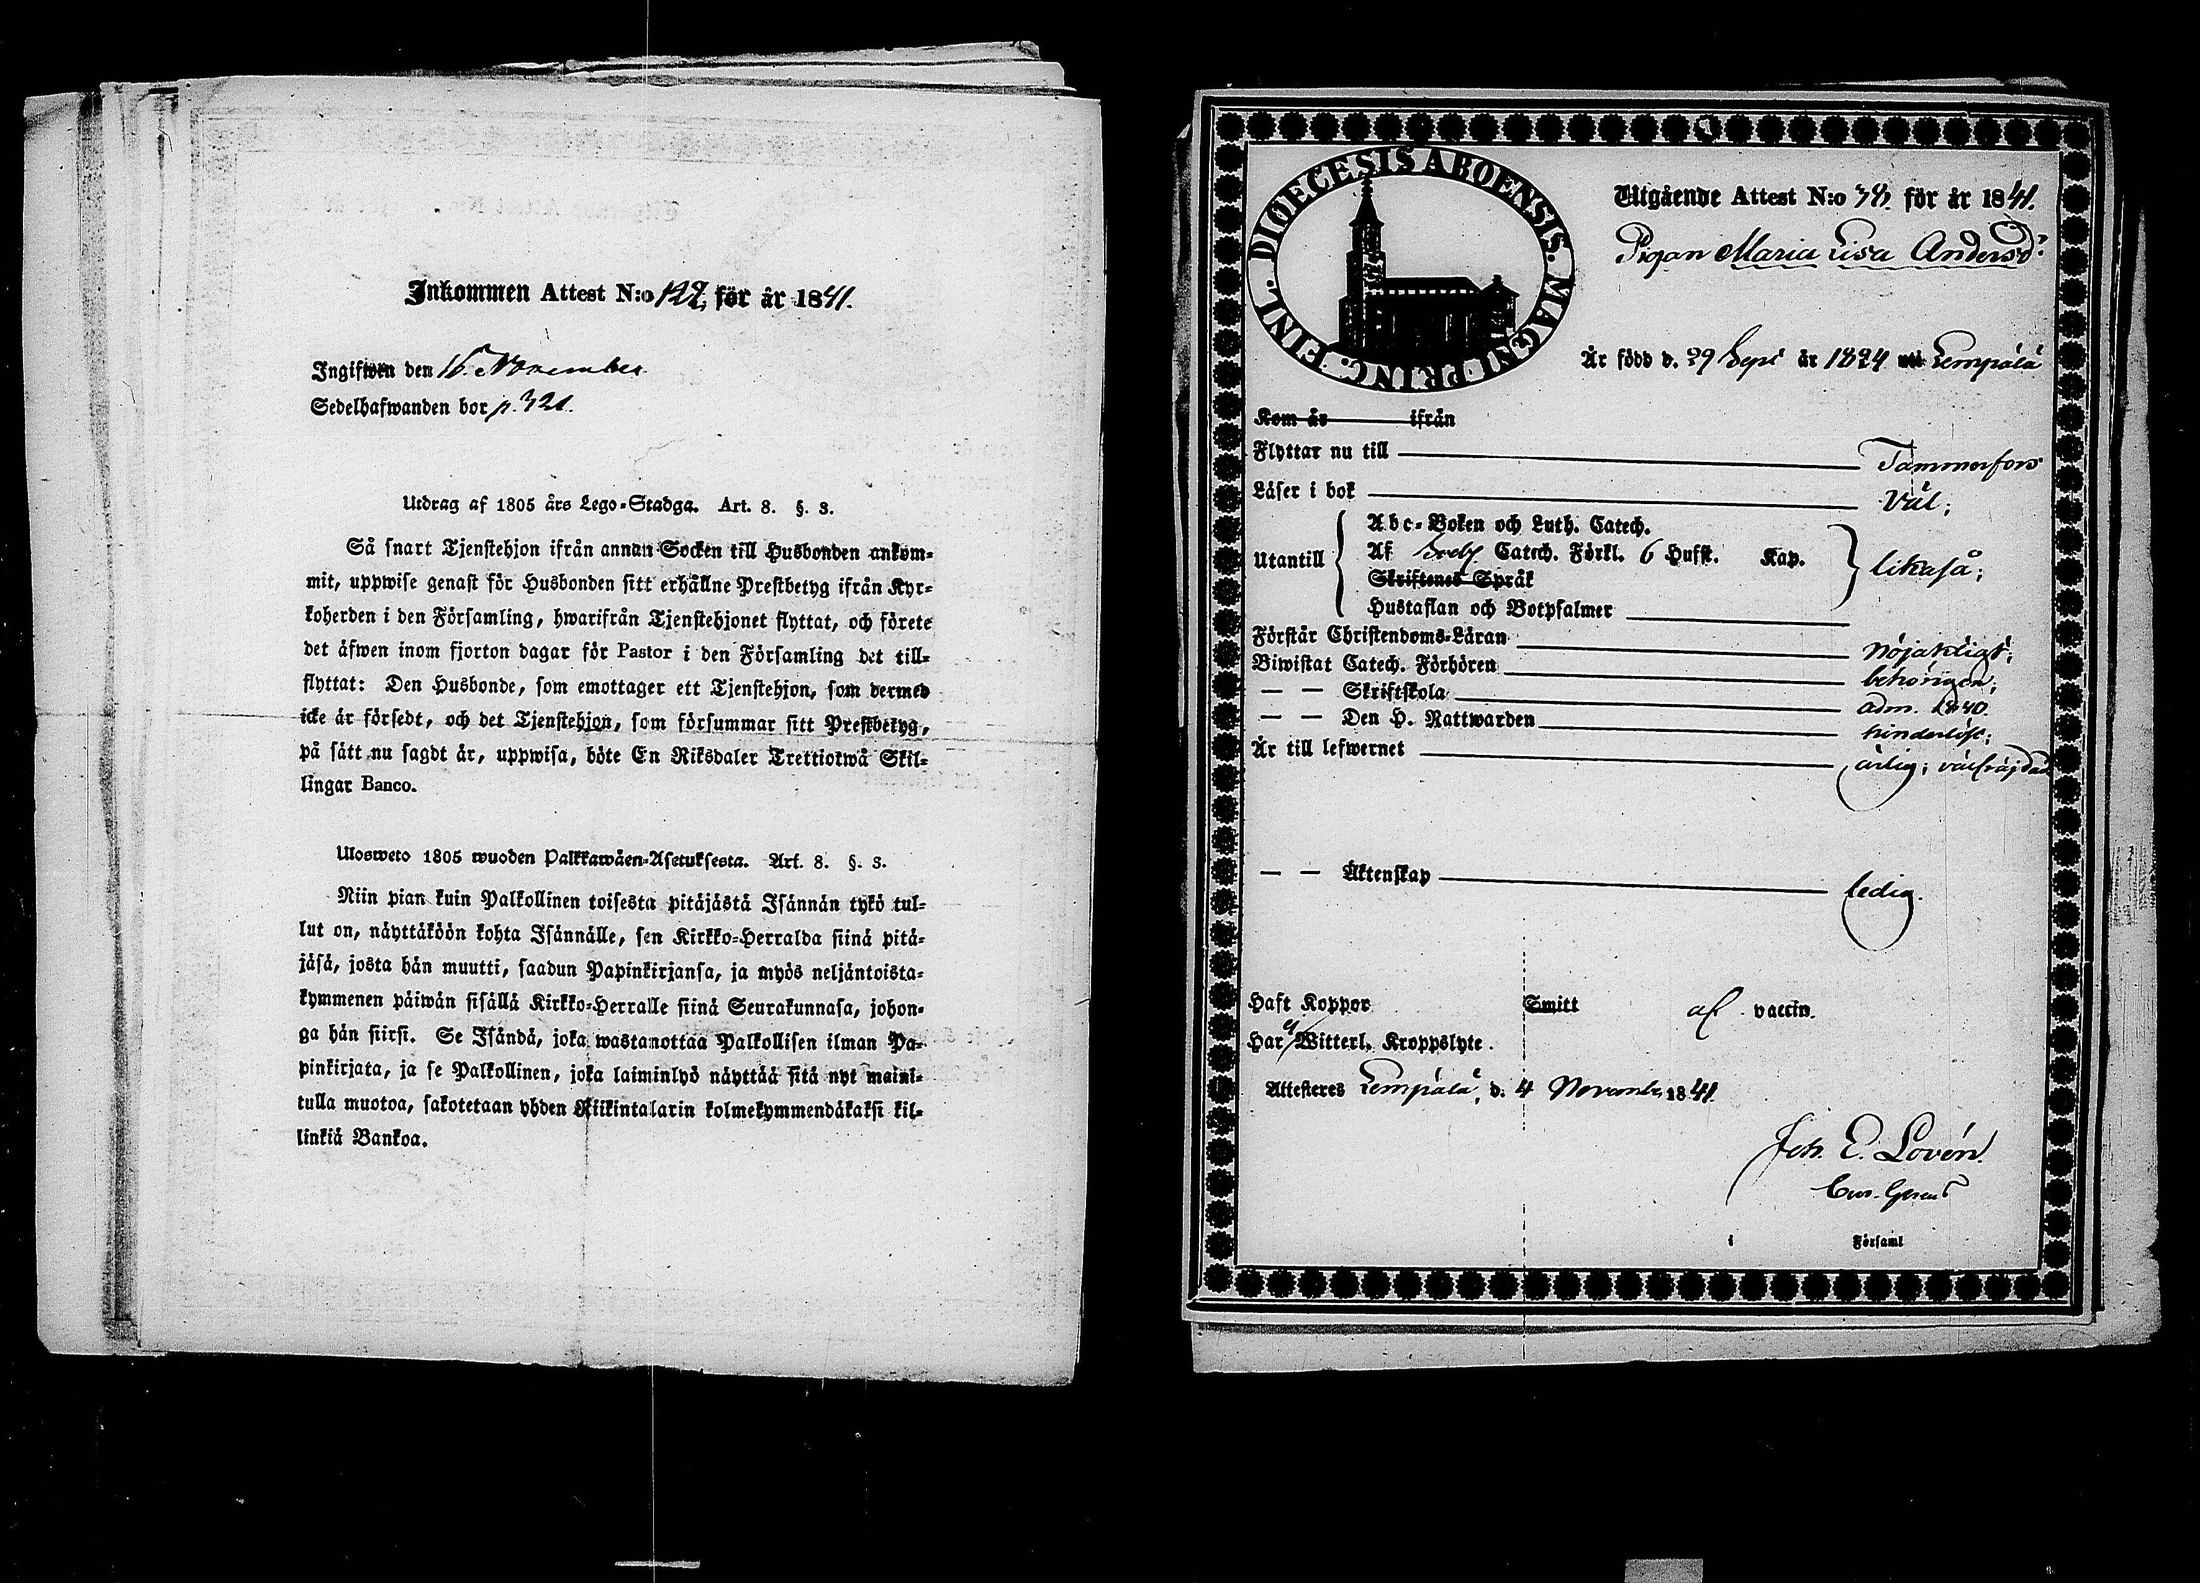 Inkommen Attest N:o 122, för år 1841.
Ingifwen den 16 November
Sedelhafwanden bor p. 321.
Utdrag af 1805 års Lego-Stadga. Art. 8. §. 3.
Så snart Tjenstehjon ifrån annan Socken till Husbonden ankom-
mit, uppwise genast för Husbonden sitt erhållne Prestbetyg ifrån Kyr-
koherden i den Församling, hwarifrån Tjenstehjonet flyttat, och förete
det äfwen inom fjorton dagar för Pastor i den Församling det till-
flyttat: Den Husbonde, som emottager ett Tjenstehjon, som dermed
icke är försedt, och det Tjenstehjon, som försummar sitt Prestbetyg,
på sätt nu sagdt är, uppwisa, böte En Riksdaler Trettiotwå Skil-
lingar Banco.
Ulosweto 1805 wuoden Palkkawäen-Asetuksesta. Art. 8. §. 3.
Niin pian kuin Palkollinen toisesta pitäjästä Isännän tykö tul-
lut on, näyttäköön kohta Isännälle, sen Kirkko-Herralda siinä pitä-
jäsä, josta hän muutti, saadun Papinkirjansa, ja myös neljäntoista-
kymmenen päiwän sisällä Kirkko-Herralle siinä Seurakunnasa, johon-
ga hän siirsi. Se Isändä, joka wastanottaa Palkollisen ilman Pa-
pinkirjata, ja se Palkollinen, joka laiminlyö näyttää sitä nyt maini-
tulla muotoa, sakotetaan yhden Riikintalarin kolmekymmendäkaksi kil-
linkiä Bankoa.
DIOECESIS ABOENSIS. MAGNI PRINC. FINL.
Utgående Attest N:o 38. för år 1841.
Pigan Maria Lisa Andersd:r
Är född d. 29 Sept år 1824 uti Lempälä
Kom år ifrån
Flyttar nu till Tammerfors
Läser i bok väl;
Abc-Boken och Luth. Catech.
Utantill Af Catech. Förkl. 6 Hufst. Kap. likaså;
Skriftenes Språk
Hustaflan och Botpsalmer
Förstår Christendoms-Läran nöjaktligt;
Biwistat Catech. Förhören behörigen;
— — Skriftskola adm. 1840.
— — Den H. Nattwarden hinderlöst;
Är till lefwernet ärlig; välfräjdad
— — Äktenskap ledig.
Haft Koppor Smitt af vaccin.
Har ej Witterl. Kroppslyte.
Attesteras Lempälä, d. 4 Novemb. 1841.
Joh. E. Lovén.
Cur. Gerens
i Församl